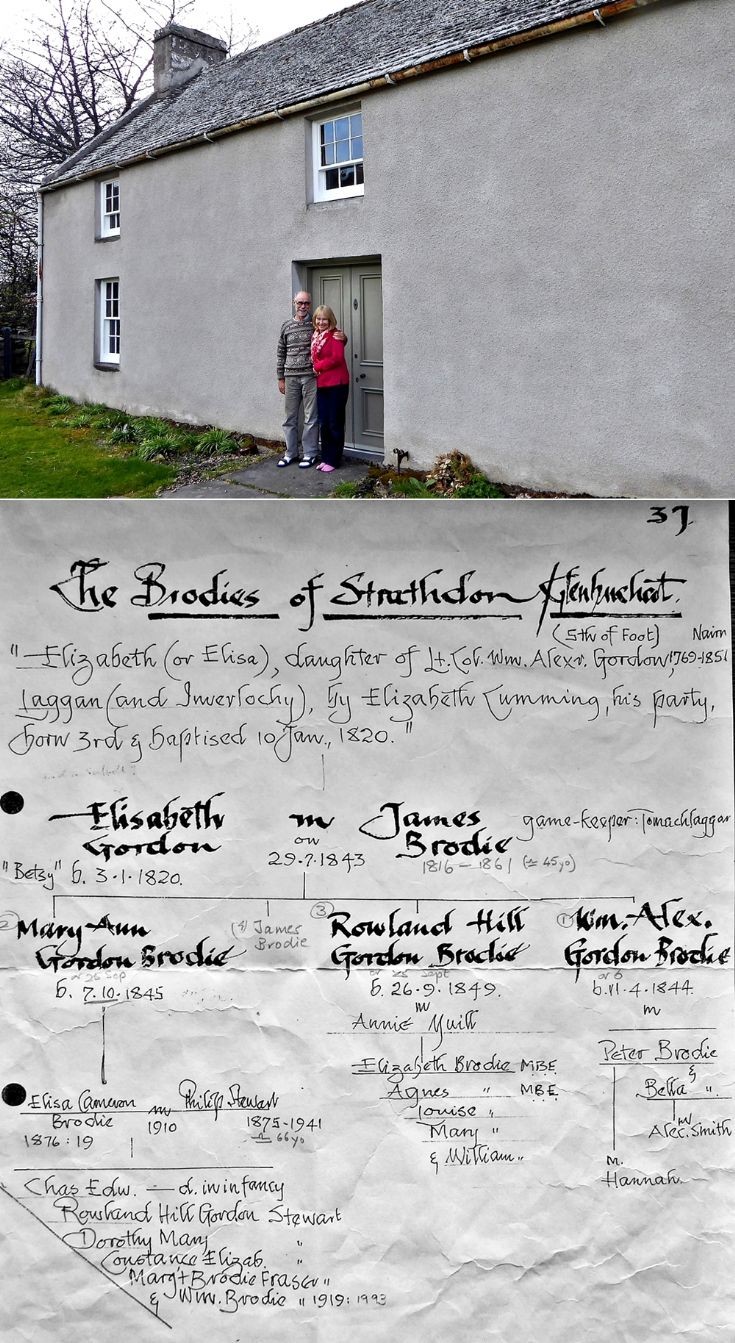 37.
The Brodies of Strathdon / Glenbuchat.
(5th of Foot) Nairn
"Elizabeth (or Elisa), daughter of Lt. Col. Wm. Alexr. Gordon, 1769-1851
Laggan (and Inverlochy), by Elizabeth Cumming, his party,
born 3rd & baptised 10 Jan., 1820."
Elisabeth m James game-keeper: Tomachlaggan
Gordon on Brodie
29.7.1843
1816 – 1861 (± 45yo)
"Betsy" b. 3.1.1820.
(2) Mary-Ann
Gordon Brodie
or 26 Sep
b. 7.10.1845
(4) James
Brodie
(3) Rowland Hill
Gordon Brodie
or 25 Sept
b. 26.9.1849.
m
Annie Yuill
Elizabeth Brodie MBE
Agnes " MBE
Louise "
Mary "
& William "
(1) Wm. Alex.
Gordon Brodie
or 6
b. 11.4.1844
m
Peter Brodie
&
Bella ".
m
Alec. Smith
m.
Hannah.
Elisa Cameron m Philip Stewart
Brodie 1910 1875-1941
1876:19 ± 66yo
Chas Edw. — d. in infancy
Rowland Hill Gordon Stewart
Dorothy Mary "
Constance Elizab. "
Margt Brodie Fraser "
& Wm. Brodie " 1919: 1993